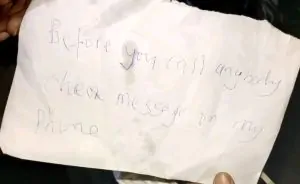 Before you call anybody
check message in my
Phone